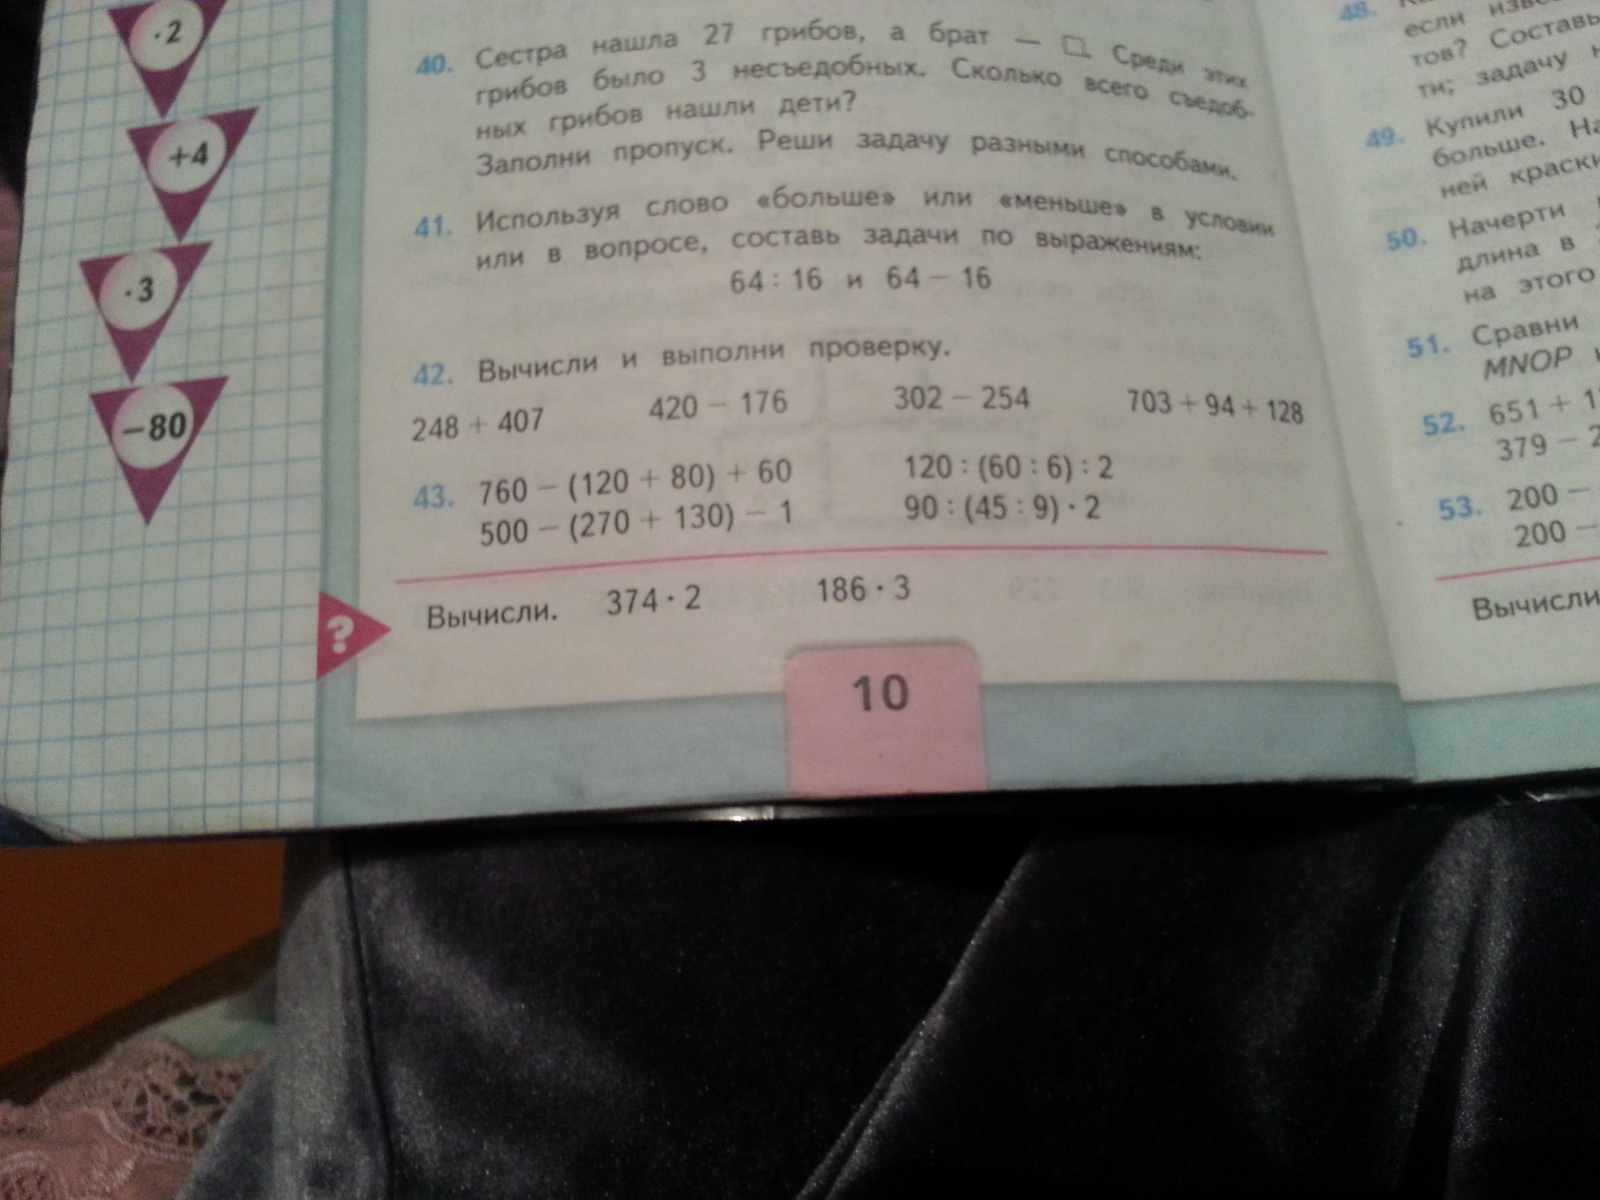 · 2
+4
· 3
−80
40. Сестра нашла 27 грибов, а брат — □. Среди этих
грибов было 3 несъедобных. Сколько всего съедоб-
ных грибов нашли дети?
Заполни пропуск. Реши задачу разными способами.
41. Используя слово «больше» или «меньше» в условии
или в вопросе, составь задачи по выражениям:
64 : 16 и 64 − 16
42. Вычисли и выполни проверку.
248 + 407 420 − 176 302 − 254 703 + 94 + 128
43. 760 − (120 + 80) + 60 120 : (60 : 6) : 2
500 − (270 + 130) − 1 90 : (45 : 9) · 2
? Вычисли. 374 · 2 186 · 3
10
48.
если
тов?
ти; задачу
49. Купили 30
больше.
ней
50. Начерти
длина в
на этого
51. Сравни
MNOP
52. 651 +
379 −
53. 200 −
200 −
Вычисли